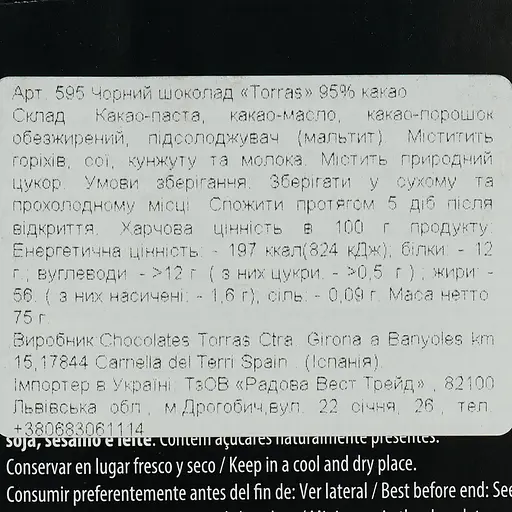 Арт. 595 Чорний шоколад «Torras» 95% какао
Склад Какао-паста, какао-масло, какао-порошок
обезжирений, підсолоджувач (мальтит). Міститить
горіхів, сої, кунжуту та молока. Містить природний
цукор. Умови зберігання. Зберігати у сухому та
прохолодному місці. Спожити протягом 5 діб після
відкриття. Харчова цінність в 100 г продукту:
Енергетична цінність: - 197 ккал(824 кДж), білки: - 12
г., вуглеводи - >12 г ( з них цукри: - >0,5 г ) ; жири: -
56. ( з них насичені: - 1,6 г), сіль: - 0,09 г. Маса нетто
75 г.
Виробник:Chocolates Torras Ctra. Girona a Banyoles km
15,17844 Carnella del Terri Spain . (Іспанія).
Імпортер в Україні: ТзОВ «Радова Вест Трейд» , 82100
Львівська обл., м.Дрогобич,вул. 22 січня, 26 , тел.
+380683061114
soja, sésamo e leite. Contém açúcares naturalmente presentes.
Conservar en lugar fresco y seco / Keep in a cool and dry place.
Consumir preferentemente antes del fin de: Ver lateral / Best before end: See